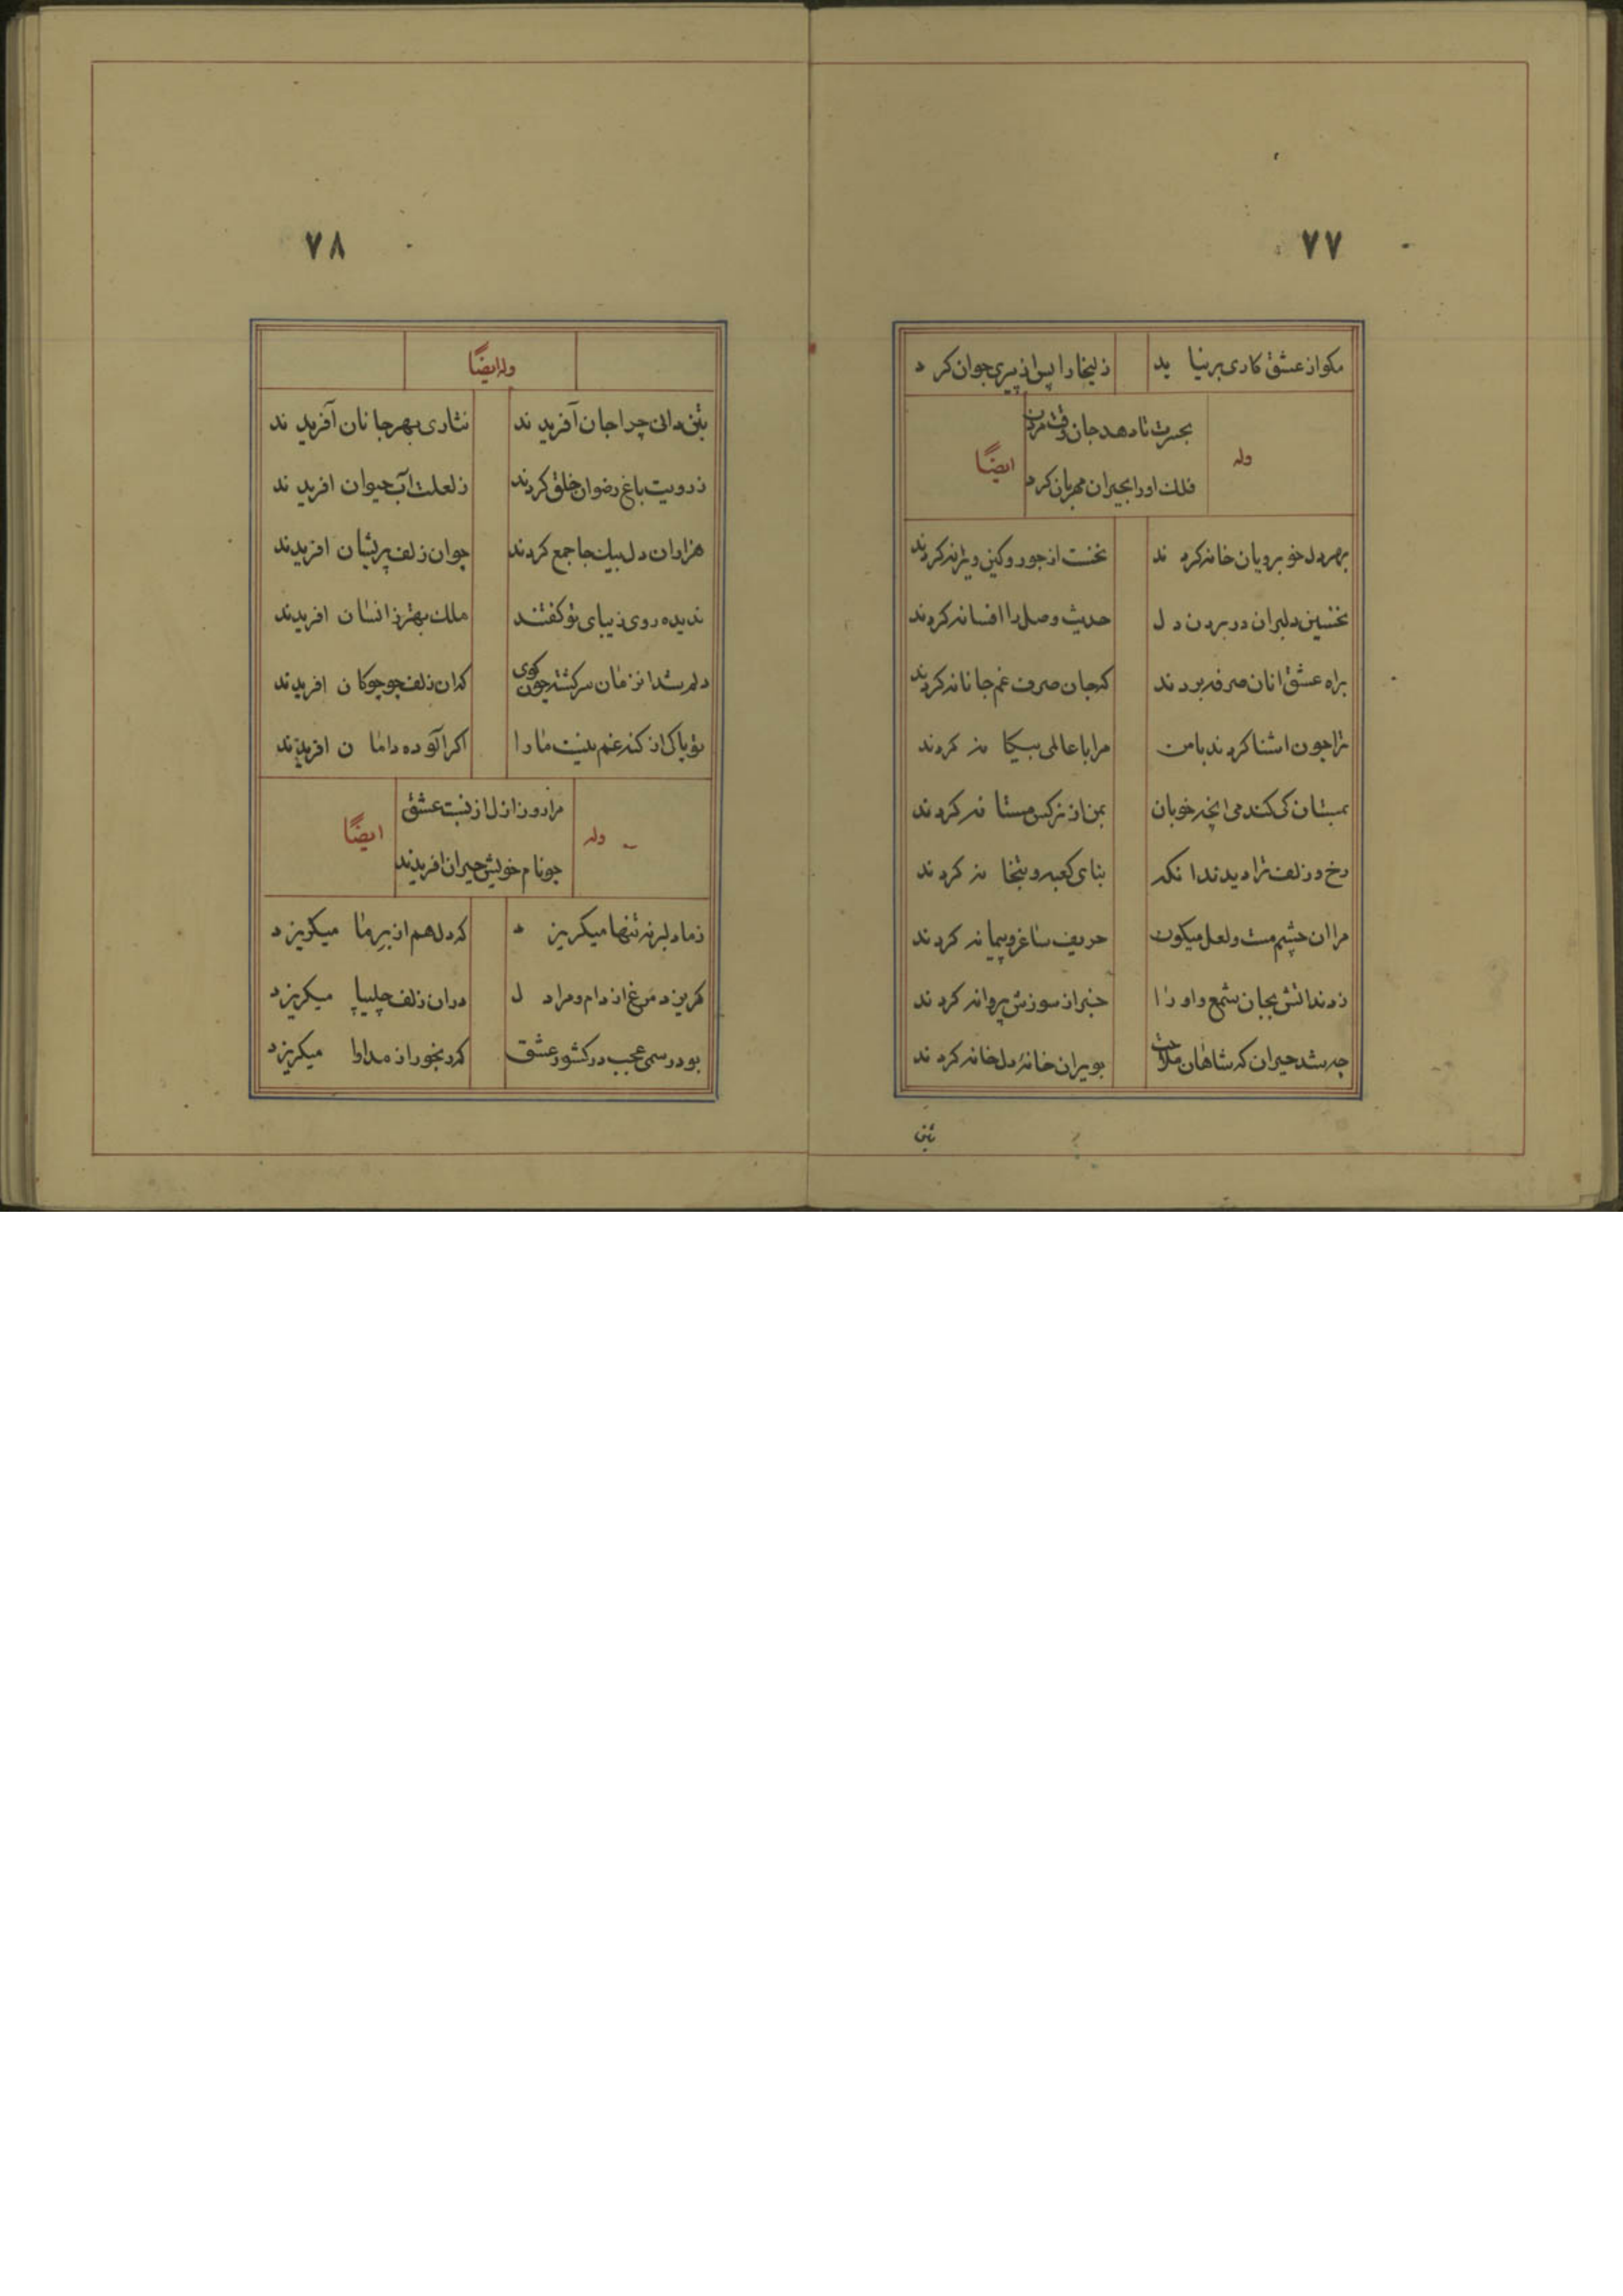 ۷۷
مکو از عشق کاری برنیاید
زلیخا را پس از پیری جوان کرد
وله
بحسرت تا دهد جان وقت مردن
فلک او را بحیران مهربان کرد
ایضًا
بهر دل خوبرویان خانه کردند
نخست از جور و کین ویرانه کردند
نخستین دلبران در بردن دل
حدیث وصل را افسانه کردند
براه عشق انان صرفه بردند
که جان صرف غم جانانه کردند
ترا چون اشنا کردند با من
مرا با عالمی بیکانه کردند
بمستان کی کند می انچه خوبان
بمن از نرکس مستانه کردند
رخ و زلف ترا دیدند انکه
بنای کعبه و بتخانه کردند
مرا ان چشم مست و لعل میکون
حریف ساغر و پیمانه کردند
زدند اتش بجان شمع و او را
خبر از سوزش پروانه کردند
چه شد حیران که شاهان ملاحت
بویران خانهٔ دل خانه کردند
بتن
۷۸
وله ایضًا
بتن دانی چرا جان آفریدند
نثاری بهر جانان آفریدند
ز رویت باغ رضوان خلق کردند
ز لعلت آب حیوان افریدند
هزاران دل بیک جا جمع کردند
چو ان زلف پریشان افریدند
ندیده روی زیبای تو کفتند
ملک بهتر ز انسان افریدند
دلم شد انزمان سرکشته چون کوی
که ان زلف چو چوکان افریدند
تو پاکی از کنه غم نیست ما را
اکر آلوده دامان افریدند
وله
مرا روز ازل از نسبت عشق
چو نام خویش حیران افریدند
ایضًا
ز ما دلبر نه تنها میکریزد
که دل هم از برِ ما میکریزد
کریزد مرغ از دام و مرا دل
در ان زلف چلیپا میکریزد
بود رسمی عجب در کشور عشق
که رنجور از مداوا میکریزد